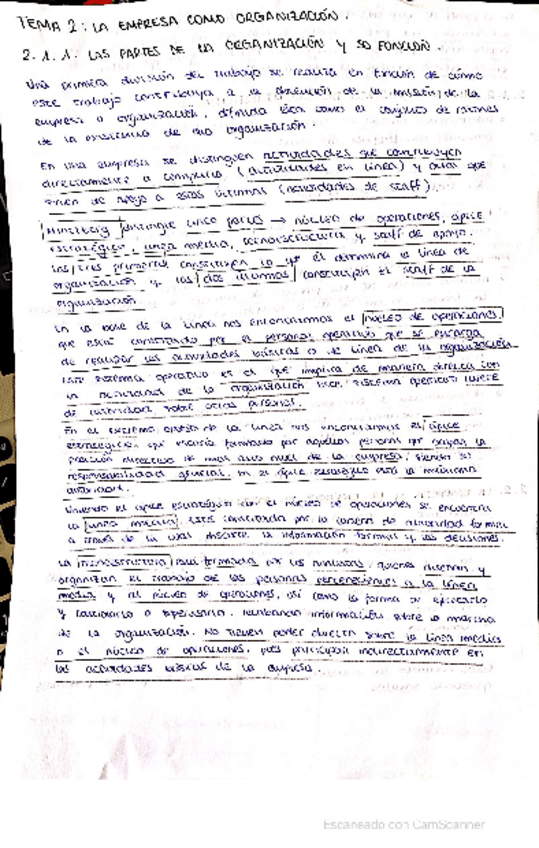 TEMA 2: LA EMPRESA COMO ORGANIZACIÓN.
2.1.1. LAS PARTES DE LA ORGANIZACIÓN Y SU FUNCIÓN.
Una primera división del trabajo se realiza en función de cómo
este trabajo contribuya a la obtención de la misión de la
empresa u organización, definida ésta como el conjunto de razones
de la existencia de una organización.
En una empresa se distinguen actividades que contribuyen
directamente a (actividades en línea) y otras que
sirven de apoyo a estas últimas (actividades de staff).
Mintzberg distingue cinco partes → núcleo de operaciones, ápice
estratégico, línea media, tecnoestructura y staff de apoyo.
Las tres primeras constituyen la que él denomina la línea de
organización y las dos últimas constituyen el staff de la
organización.
En la base de la línea nos encontramos el núcleo de operaciones,
que está constituido por el personal operativo que se encarga
de realizar las actividades básicas o de línea de la organización.
Este sistema operativo es el que implica de manera directa con
la actividad de la organización. sistema operativo
de autoridad sobre otras personas.
En el extremo opuesto de la línea nos encontramos el ápice
estratégico que estaría formado por aquellas personas que ocupan la
posición directiva de más alto nivel de la empresa, siendo su
responsabilidad general. En el ápice estratégico está la máxima
autoridad.
Uniendo el ápice estratégico con el núcleo de operaciones se encuentra
la línea media. Está constituida por la cadena de autoridad formal
a través de la cual discurre la información formal y las decisiones.
La tecnoestructura está formada por los analistas, quienes diseñan y
organizan el trabajo de las personas pertenecientes a la línea
media y al núcleo de operaciones, así como la forma de ejecutarlo
y controlarlo o supervisarlo, información sobre la marcha
de la organización. No tienen poder directo sobre la línea media
o el núcleo de operaciones, pues participan indirectamente en
las actividades básicas de la empresa.
Escaneado con CamScanner